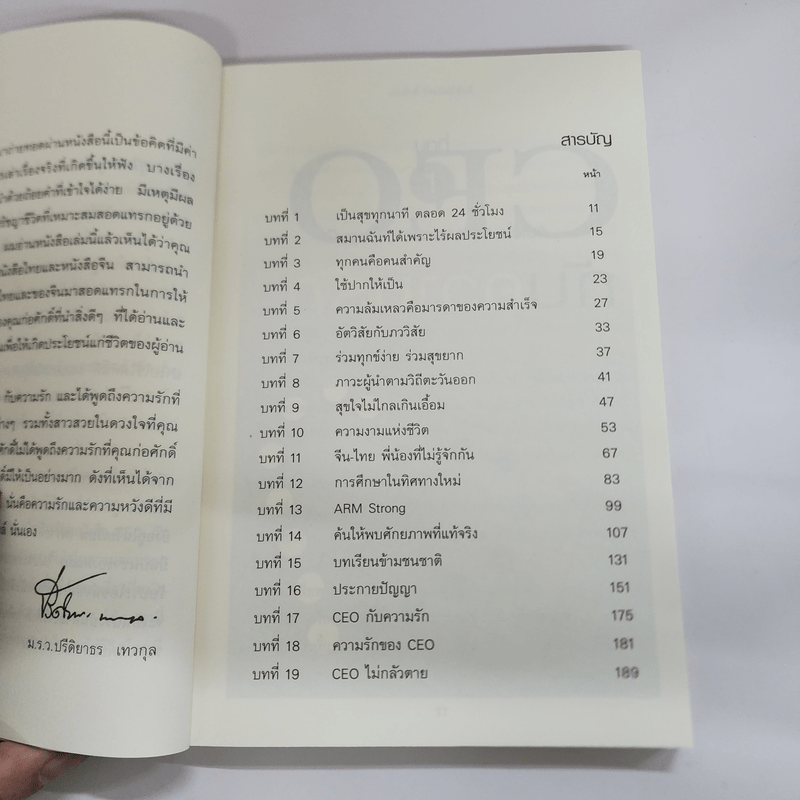 ่ายทอดผ่านหนังสือนี้เป็นข้อคิดที่มีค่า
เล่าเรื่องจริงที่เกิดขึ้นให้ฟัง บางเรื่อง
ด้วยถ้อยคำที่เข้าใจได้ง่าย มีเหตุมีผล
ชีวิตที่เหมาะสมสอดแทรกอยู่ด้วย
ผมอ่านหนังสือเล่มนี้แล้วเห็นได้ว่าคุณ
หนังสือไทยและหนังสือจีน สามารถนำ
ไทยและของจีนมาสอดแทรกในการให้
คุณก่อศักดิ์ที่นำสิ่งดีๆ ที่ได้อ่านและ
เพื่อให้เกิดประโยชน์แก่ชีวิตของผู้อ่าน
กับความรัก และได้พูดถึงความรักที่
ต่างๆ รวมทั้งสาวสวยในดวงใจที่คุณ
ศักดิ์ไม่ได้พูดถึงความรักที่คุณก่อศักดิ์
มีให้เป็นอย่างมาก ดังที่เห็นได้จาก
นั่นคือความรักและความหวังดีที่มี
นั่นเอง
ม.ร.ว.ปรีดิยาธร เทวกุล
สารบัญ
หน้า
บทที่ 1 เป็นสุขทุกนาที ตลอด 24 ชั่วโมง 11
บทที่ 2 สมานฉันท์ได้เพราะไร้ผลประโยชน์ 15
บทที่ 3 ทุกคนคือคนสำคัญ 19
บทที่ 4 ใช้ปากให้เป็น 23
บทที่ 5 ความล้มเหลวคือมารดาของความสำเร็จ 27
บทที่ 6 อัตวิสัยกับภววิสัย 33
บทที่ 7 ร่วมทุกข์ง่าย ร่วมสุขยาก 37
บทที่ 8 ภาวะผู้นำตามวิถีตะวันออก 41
บทที่ 9 สุขใจไม่ไกลเกินเอื้อม 47
บทที่ 10 ความงามแห่งชีวิต 53
บทที่ 11 จีน-ไทย พี่น้องที่ไม่รู้จักกัน 67
บทที่ 12 การศึกษาในทิศทางใหม่ 83
บทที่ 13 ARM Strong 99
บทที่ 14 ค้นให้พบศักยภาพที่แท้จริง 107
บทที่ 15 บทเรียนข้ามชนชาติ 131
บทที่ 16 ประกายปัญญา 151
บทที่ 17 CEO กับความรัก 175
บทที่ 18 ความรักของ CEO 181
บทที่ 19 CEO ไม่กลัวตาย 189